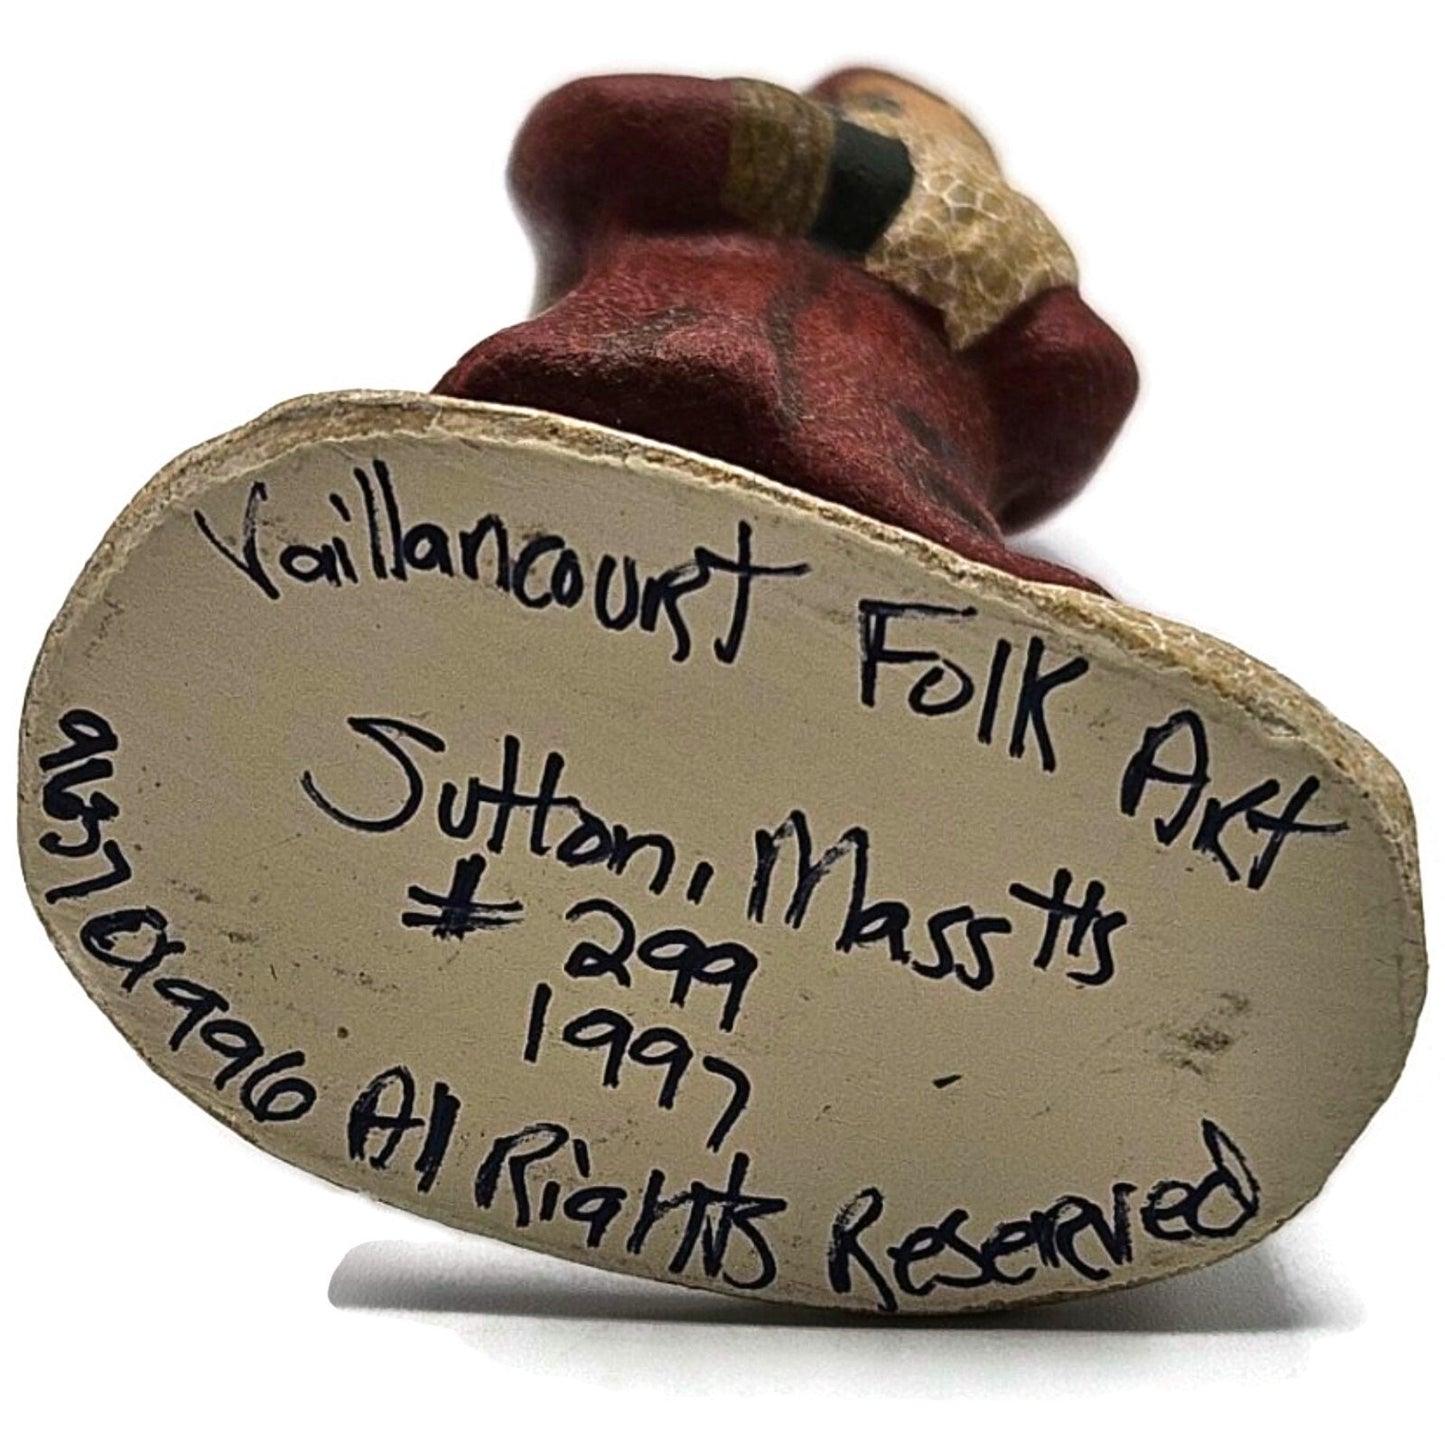 Vaillancourt Folk Art
Sutton, Masstts
# 299
1997
9637 ©1996 All Rights Reserved